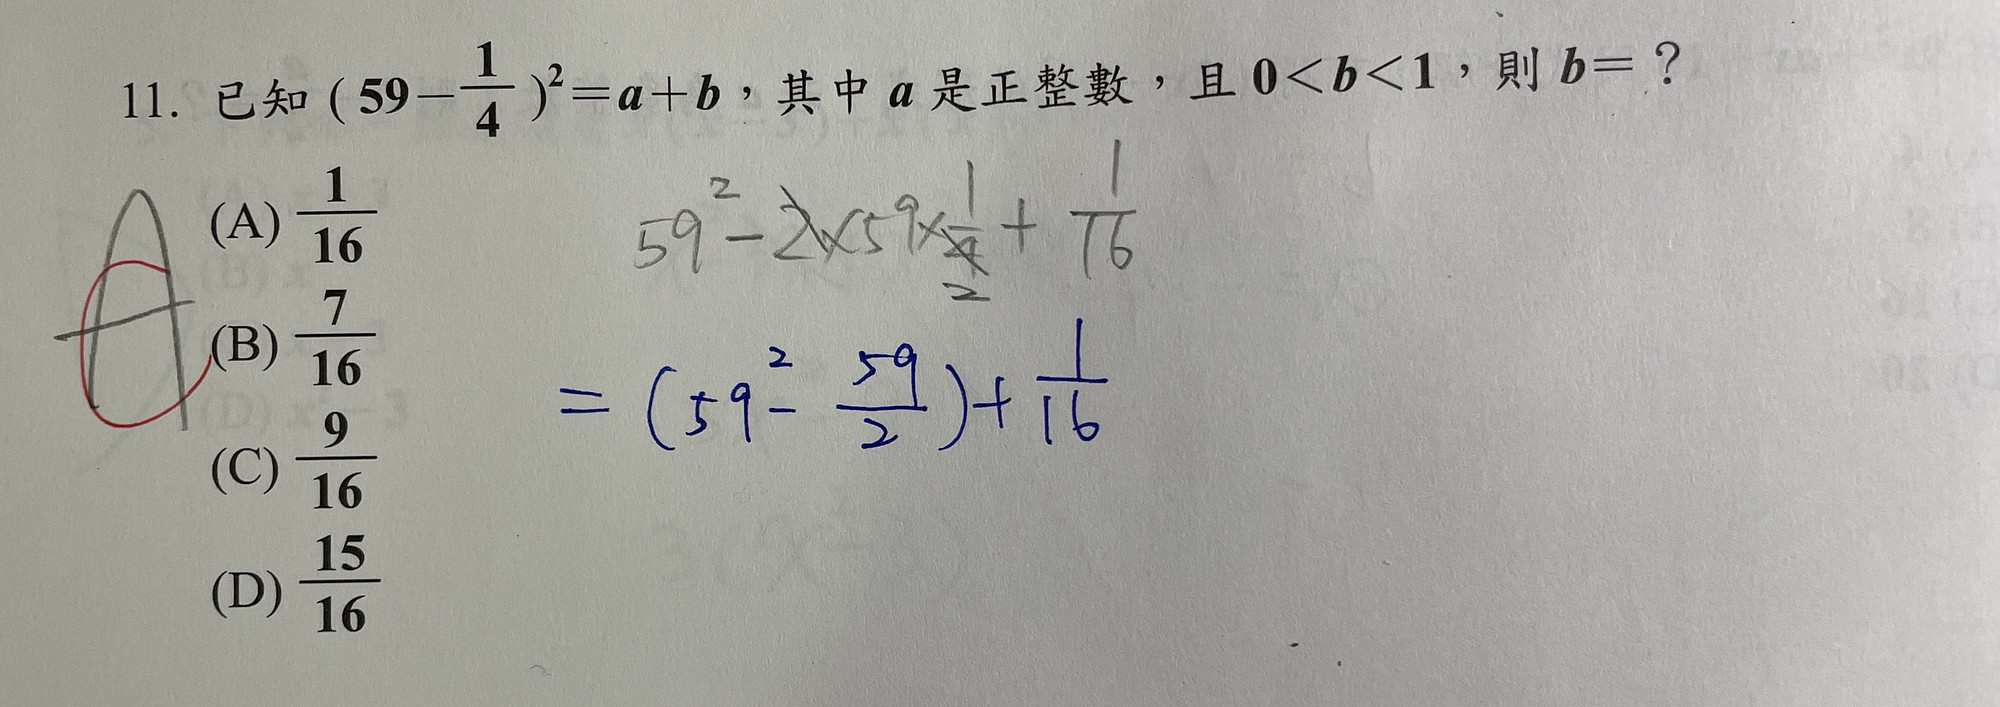 11. 已知 ( 59 − 1/4 )² = a + b，其中 a 是正整數，且 0 < b < 1，則 b = ？
(A) 1/16
(B) 7/16
(C) 9/16
(D) 15/16
A
59² − 2×59×1/4 + 1/16
2
= (59² − 59/2) + 1/16